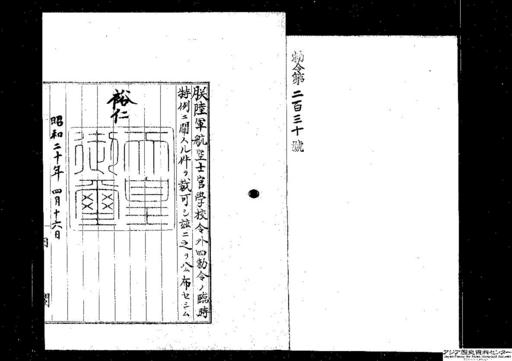 勅令第二百三十號
朕陸軍航空士官學校令外四勅令ノ臨時
特例ニ關スル件ヲ裁可シ玆ニ之ヲ公布セシム
裕仁
天皇
御璽
昭和二十年四月十六日
内閣
アジア歴史資料センター